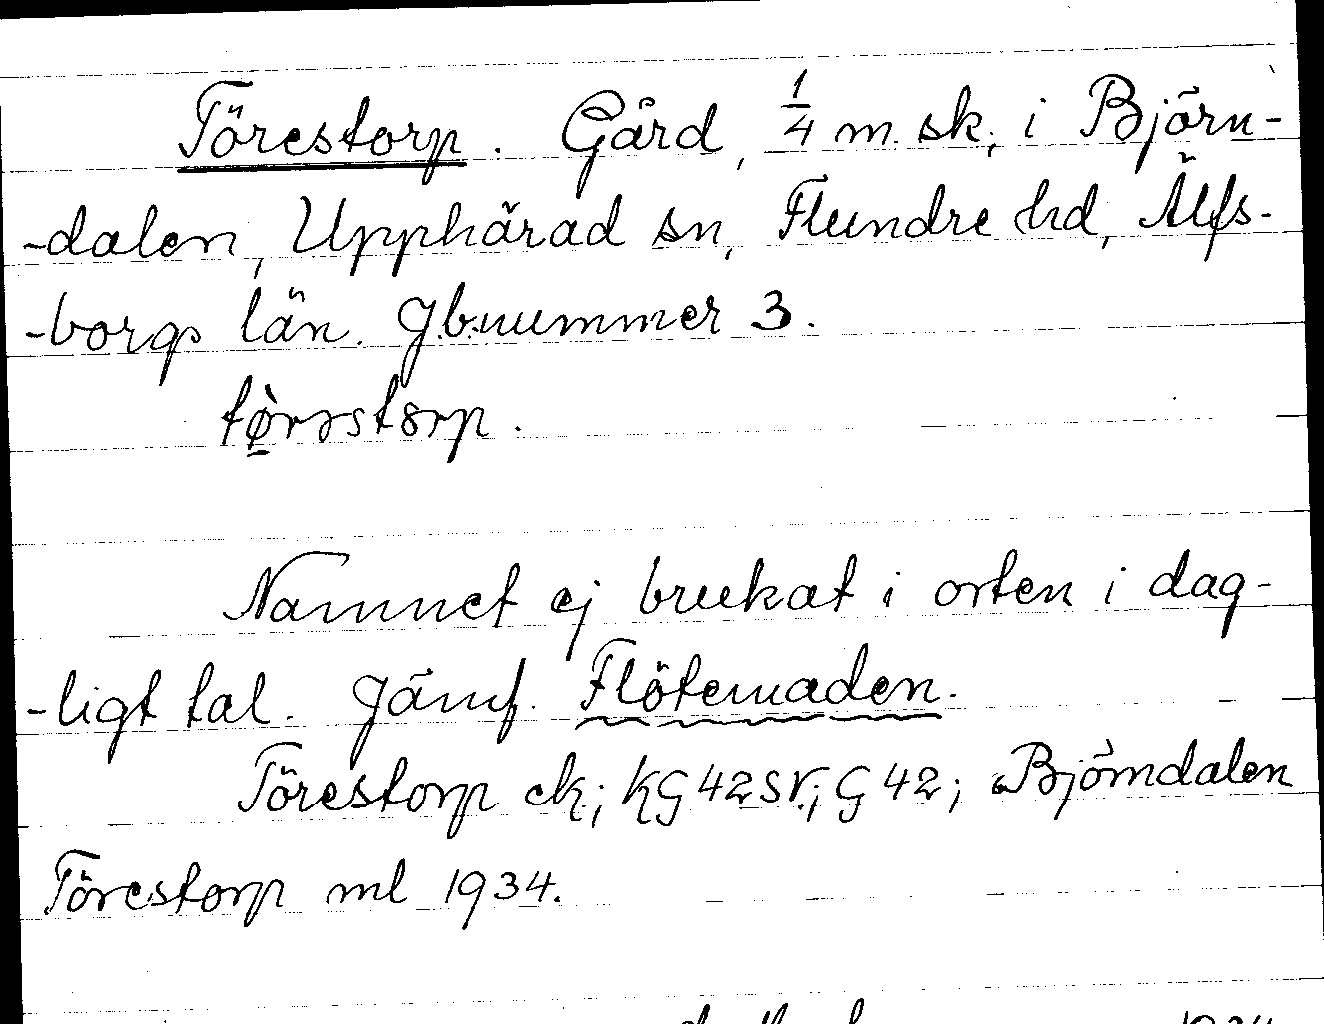 Törestorp. Gård, 1/4 m. sk., i Björn-
-dalen, Upphärad sn, Flundre hd, Älfs-
-borgs län. Jb.nummer 3.
tø̀rrstorp.
Namnet ej brukat i orten i dag-
-ligt tal. Jämf. Flötemaden.
Törestorp ek.; KG 42 SV.; G 42; Björndalen
Törestorp ml 1934.
1934